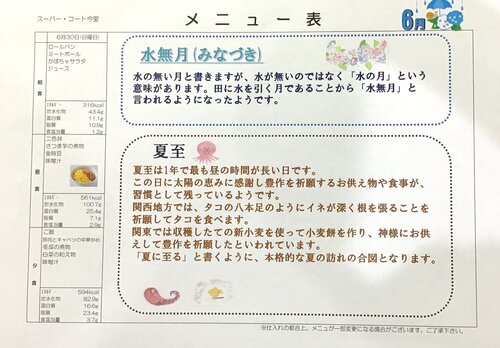 スーパー・コート今里
メニュー表
6月
6月30日(日曜日)
朝食
ロールパン
ミートボール
かぼちゃサラダ
ジュース
ｴﾈﾙｷﾞｰ 316kcal
炭水化物 43.4g
蛋白質 11.1g
脂質 10.9g
食塩当量 1.2g
昼食
二色丼
さつま芋の煮物
金時豆
味噌汁
ｴﾈﾙｷﾞｰ 561kcal
炭水化物 100.7g
蛋白質 25.4g
脂質 7.1g
食塩当量 2.9g
夕食
ご飯
豚肉とキャベツの中華炒め
冬瓜の煮物
白菜の和え物
味噌汁
ｴﾈﾙｷﾞｰ 594kcal
炭水化物 82.9g
蛋白質 16.6g
脂質 23.4g
食塩当量 3.7g
水無月(みなづき)
水の無い月と書きますが、水が無いのではなく「水の月」という
意味があります。田に水を引く月であることから「水無月」と
言われるようになったようです。
夏至
夏至は1年で最も昼の時間が長い日です。
この日に太陽の恵みに感謝し豊作を祈願するお供え物や食事が、
習慣として残っているようです。
関西地方では、タコの八本足のようにイネが深く根を張ることを
祈願してタコを食べます。
関東では収穫したての新小麦を使って小麦餅を作り、神様にお供
えして豊作を祈願したといわれています。
「夏に至る」と書くように、本格的な夏の訪れの合図となります。
※仕入れの都合上、メニューが一部変更になる場合がございます。ご了承下さい。